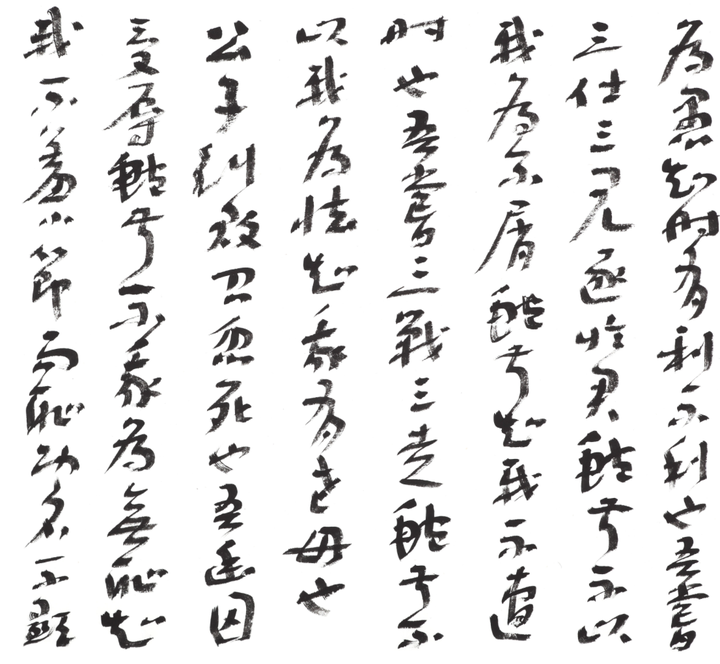 為愚知時有利不利也吾嘗
三仕三見逐於君鮑叔不以
我為不肖鮑叔知我不遭
時也吾嘗三戰三走鮑叔不
以我為怯知我有老母也
公子糾敗召忽死也吾幽囚
受辱鮑叔不我為無恥知
我不羞小節而恥功名不顯